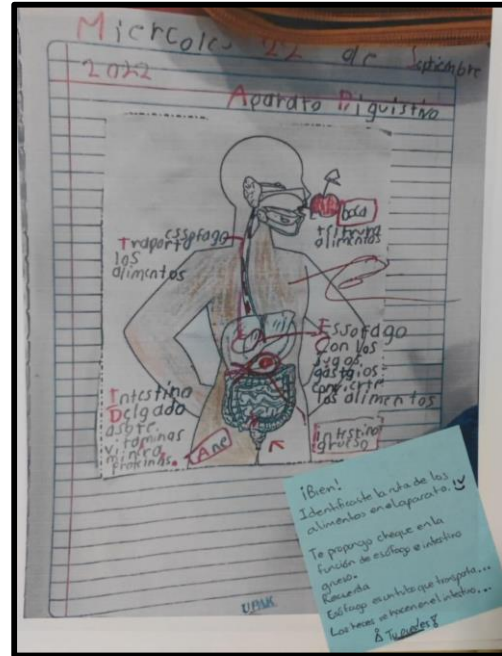 Miercoles 22 de Septiembre
2022
Aparato Diguistivo
essofago
Traporta
los
alimentos
boca
tritura
alimentos
Essofago
Con los
jugos
gastgios
convierte
los alimentos
Intestino
Delgado
asorte
vitaminas
minero
Proteinas.
Ano
intestino
grueso
UPAK
¡Bien!
Identificaste la ruta de los
alimentos en el aparato.
Te propongo cheque en la
función de esófago e intestino
grueso.
Recuerda
Esófago es un tubo que transporta...
Las heces se hacen en el intestino...
Tu puedes